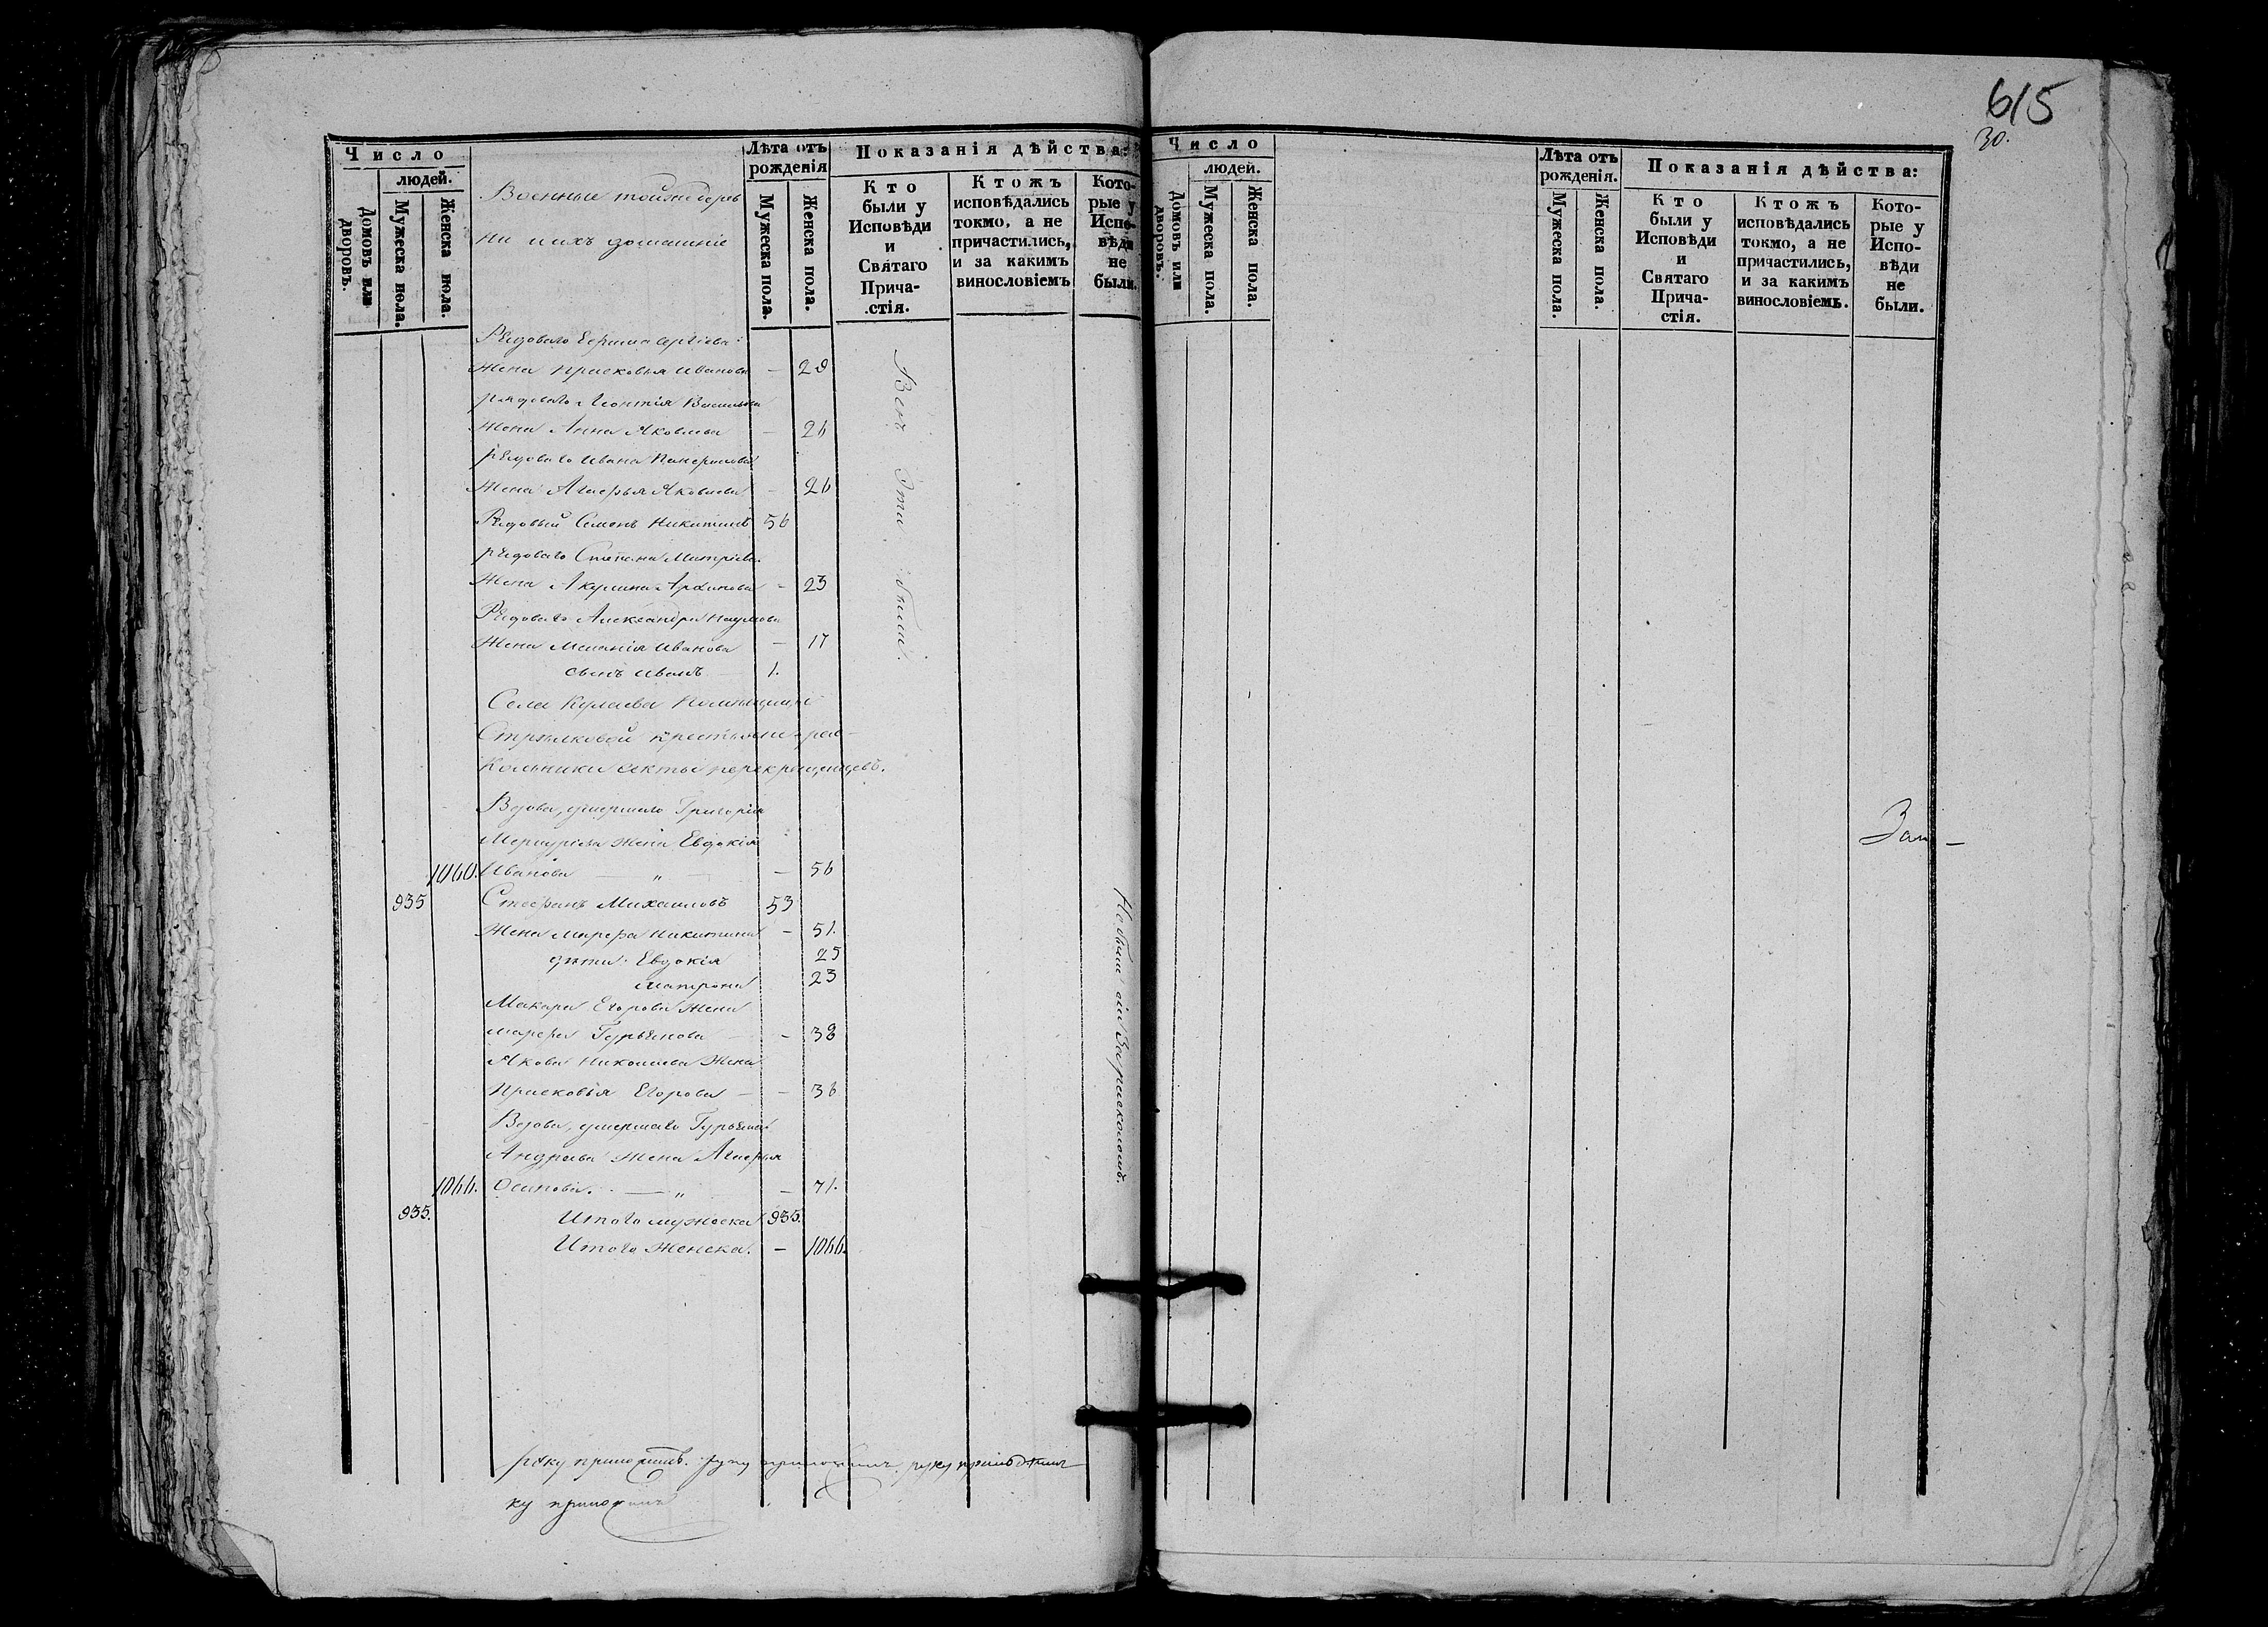 615
30.
Число
людей.
Домовъ или дворовъ.
Мужеска пола.
Женска пола.
Лѣта отъ рожденія
Мужеска пола.
Женска пола.
Показанія дѣйства:
Кто были у Исповѣди и Святаго Прича-стія.
Ктожъ исповѣдались токмо, а не причастились, и за какимъ винословіемъ
Кото-рые у Испо-вѣди не были.
Военные тойже дерев
ни и ихъ домашніе
Рядоваго Ефима Сергіева
Жена Прасковья Иванова — 28
рядоваго Леонтія Васильева
Жена Анна Яковлева — 26
рядоваго Ивана
Жена Агафья Яковлева — 26
Рядовый Семенъ Никитинъ 56
рядоваго Степана Митріева
Жена Акулина Архипова - 23
Рядоваго Александра Наумова
Жена Меланія Иванова — 17
сынъ Иванъ 1.
Всѣ Эти были.
Села Кулаева Помѣщицы
Стрѣлковой крестьяне рас-
кольники секты перекрещенцевъ.
Вдова, умершаго Григорія
Меркуріева жена Евдокія
1060. Иванова — „ — — 56
935 Стефанъ Михаиловъ 53
Жена Марфа Никитина - 51.
дѣти: Евдокія 25
Матрона 23
Макара Егорова Жена
Марфа Гурьянова — - 38
Якова Николаева Жена
Прасковья Егорова — - 36
Вдова, умершаго Гурьяна
Андреева Жена Агафья
1066. Осипова. — „ — 71.
935. Итого мужеска 935.
Итого Женска. — 1066.
Небыли сіи За расколомъ.
руку приложилъ. руку приложилъ. руку приложилъ
ку приложилъ
Число
людей.
Домовъ или дворовъ.
Мужеска пола.
Женска пола.
Лѣта отъ рожденія.
Мужеска пола.
Женска пола.
Показанія дѣйства:
Кто были у Исповѣди и Святаго Прича-стія.
Ктожъ исповѣдались токмо, а не причастились, и за какимъ винословіемъ.
Кото-рые у Испо-вѣди не были.